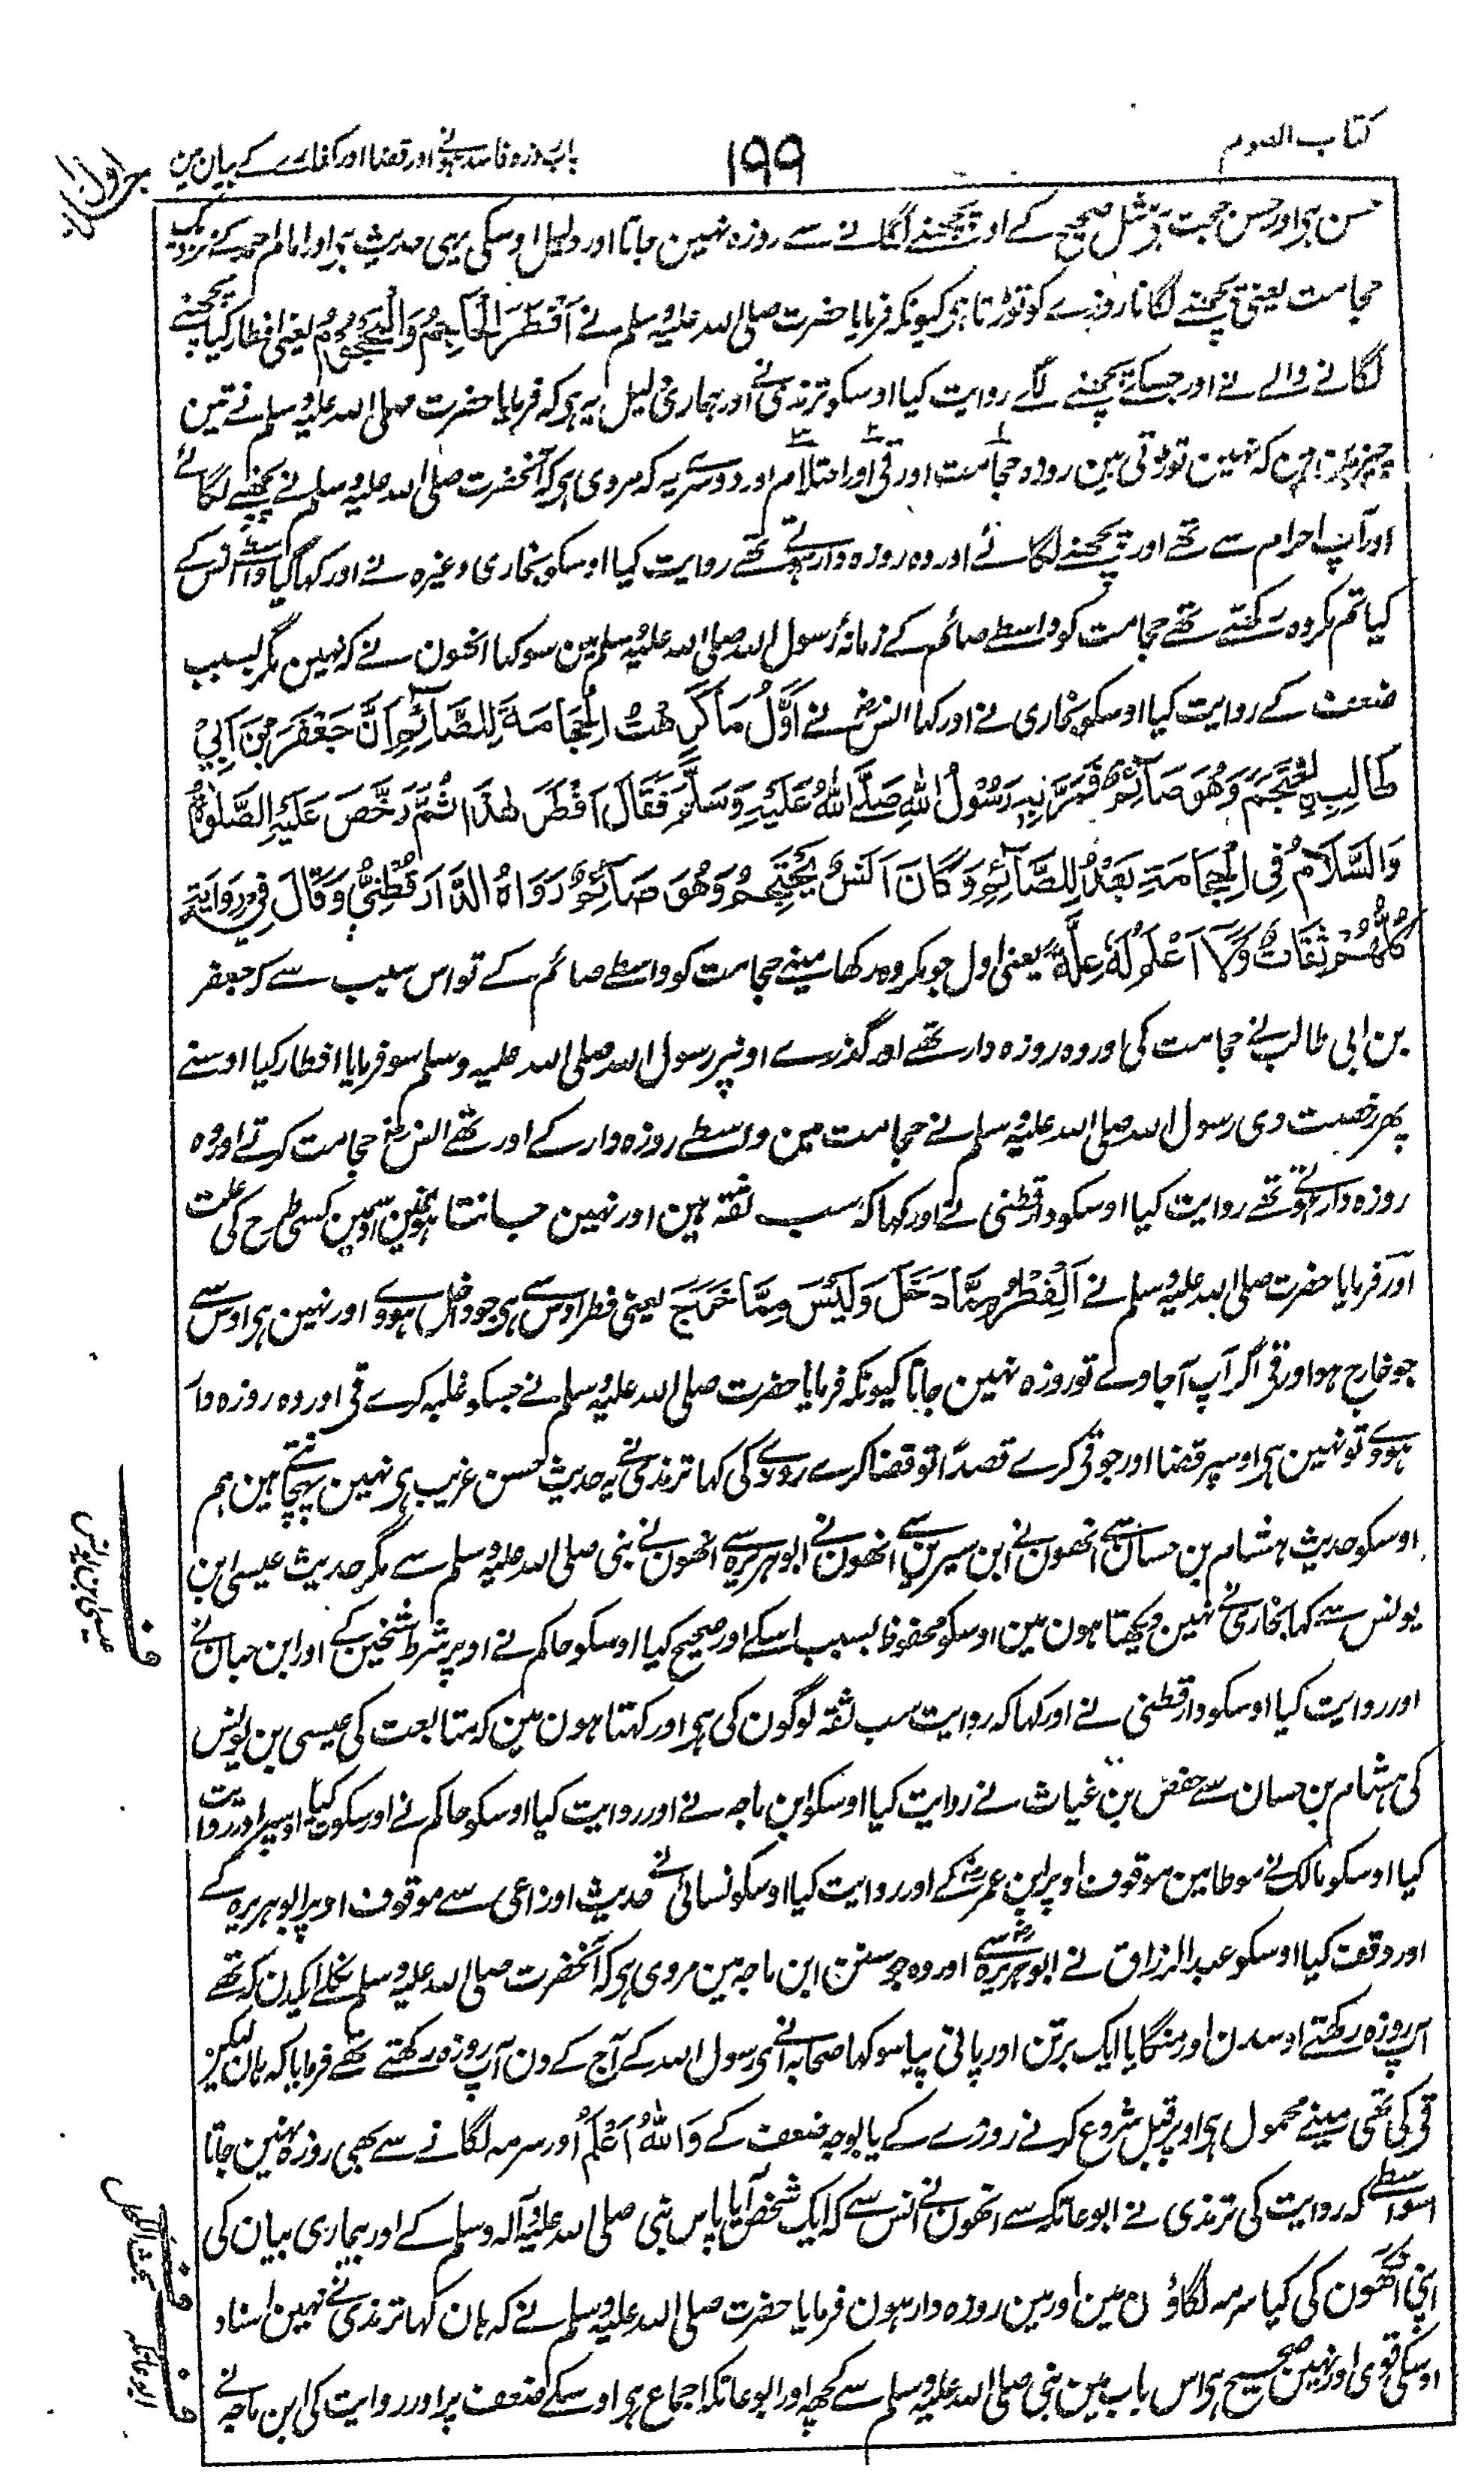 کتاب الصوم
۱۹۹
باب روزہ فاسد ہونے اور قضا اور کفارے کے بیان مین
جلد اول
حسن ہی اور حسن حجت ہی مثل صحیح کے اور پچھنے لگانے سے روزہ نہین جاتا اور دلیل اوسکی یہی حدیث ہی اور امام احمد کے نزدیک
حجامت یعنی پچھنے لگانا روزے کو توڑتا ہی کیونکہ فرمایا حضرت صلی اللہ علیہ وسلم نے اَفْطَرَ الْحَاجِمُ وَالْمَحْجُوْمُ یعنی افطار کیا پچھنے
لگانے والے نے اور جسکے پچھنے لگے روایت کیا اوسکو ترمذی نے اور ہماری دلیل یہ ہی کہ فرمایا حضرت صلی اللہ علیہ وسلم نے تین
چیزین ہین کہ نہین توڑتی ہین روزہ حجامت اور قی اور احتلام اور دوسری یہ کہ مروی ہی کہ آنحضرت صلی اللہ علیہ وسلم نے پچھنے لگائے
اور آپ احرام سے تھے اور پچھنے لگائے اور وہ روزہ دار ہوتے تھے روایت کیا اوسکو بخاری وغیرہ نے اور کہا گیا واسطے انس کے
کیا تم مکروہ رکھتے تھے حجامت کو واسطے صائم کے زمانۂ رسول اللہ صلی اللہ علیہ وسلم مین سو کہا انھون نے کہ نہین مگر بسبب
ضعف کے روایت کیا اوسکو بخاری نے اور کہا انسؓ نے اَوَّلُ مَا كَرِهْتُ الْحِجَامَةَ لِلصَّائِمِ اَنَّ جَعْفَرَ بْنَ اَبِيْ
طَالِبٍ اِحْتَجَمَ وَهُوَ صَائِمٌ فَمَرَّ بِهٖ رَسُوْلُ اللهِ صَلَّى اللهُ عَلَيْهِ وَسَلَّمَ فَقَالَ اَفْطَرَ هٰذَا ثُمَّ رَخَّصَ عَلَيْهِ الصَّلٰوةُ
وَالسَّلَامُ فِي الْحِجَامَةِ بَعْدُ لِلصَّائِمِ وَكَانَ اَنَسٌ يَحْتَجِمُ وَهُوَ صَائِمٌ رَوَاهُ الدَّارَقُطْنِيُّ وَقَالَ فِيْ رِوَايَةٍ
كُلُّهُمْ ثِقَاتٌ وَلَا اَعْلَمُ لَهٗ عِلَّةً یعنی اول جو مکروہ رکھا مینے حجامت کو واسطے صائم کے تو اس سبب سے کہ جعفر
بن ابی طالب نے حجامت کی اور وہ روزہ دار تھے اور گذرے اونپر رسول اللہ صلی اللہ علیہ وسلم سو فرمایا افطار کیا اوسنے
پھر رخصت دی رسول اللہ صلی اللہ علیہ وسلم نے حجامت مین واسطے روزہ دار کے اور تھے انسؓ حجامت کرتے اور وہ
روزہ دار ہوتے تھے روایت کیا اوسکو دارقطنی نے اور کہا کہ سب ثقہ ہین اور نہین جانتا ہون مین اسمین کسی طرح کی علت
اور فرمایا حضرت صلی اللہ علیہ وسلم نے اَلْفِطْرُ مِمَّا دَخَلَ وَلَيْسَ مِمَّا خَرَجَ یعنی فطر اوس سے ہی جو داخل ہووے اور نہین ہی اوس سے
جو خارج ہو اور قی اگر آپ آجاوے تو روزہ نہین جاتا کیونکہ فرمایا حضرت صلی اللہ علیہ وسلم نے جسکو غلبہ کرے قی اور وہ روزہ دار
ہووے تو نہین ہی اوسپر قضا اور جو قی کرے قصدًا تو قضا کرے روزے کی کہا ترمذی نے یہ حدیث حسن غریب ہی نہین پہچانتے ہین ہم
اوسکو حدیث ہشام بن حسان سے انھون نے ابن سیرین سے انھون نے ابو ہریرہ سے انھون نے نبی صلی اللہ علیہ وسلم سے مگر حدیث عیسی ابن
یونس سے کہا بخاری نے نہین دیکھتا ہون مین اوسکو محفوظ بسبب اسکے اور صحیح کیا اوسکو حاکم نے اوپر شرط شیخین کے اور ابن حبان نے
اور روایت کیا اوسکو دارقطنی نے اور کہا کہ روایت سب ثقہ لوگون کی ہی اور کہتا ہون مین کہ متابعت کی عیسی بن یونس
کی ہشام بن حسان سے حفص بن غیاث نے روایت کیا اوسکو ابن ماجہ نے اور روایت کیا اوسکو حاکم نے اور سکوت کیا اوسپر اور روایت
کیا اوسکو مالک نے موطا مین موقوف اوپر ابن عمرؓ کے اور روایت کیا اوسکو نسائی نے حدیث اوزاعی سے موقوف اوپر ابو ہریرہ کے
اور وقف کیا اوسکو عبد الرزاق نے ابو ہریرہؓ سے اور وہ جو سنن ابن ماجہ مین مروی ہی کہ آنحضرت صلی اللہ علیہ وسلم نکلے ایکدن کہ تھے
آپ روزہ رکھتے اوسدن اور منگایا ایک برتن اور پانی پیا سو کہا صحابہ نے ای رسول اللہ کے آج کے دن آپ روزہ رکھتے تھے فرمایا کہ ہان لیکن
قی کی تھی مینے محمول ہی اوپر قبل شروع کرنے روزے کے یا بوجہ ضعف کے وَاللهُ اَعْلَمُ اور سرمہ لگانے سے بھی روزہ نہین جاتا
اسواسطے کہ روایت کی ترمذی نے ابو عاتکہ سے انھون نے انس سے کہ ایک شخص آیا پاس نبی صلی اللہ علیہ وآلہ وسلم کے اور بیماری بیان کی
اپنی آنکھون کی کیا سرمہ لگاؤن مین اور مین روزہ دار ہون فرمایا حضرت صلی اللہ علیہ وسلم نے کہ ہان کہا ترمذی نے نہین اسناد
اوسکی قوی اور نہین صحیح ہی اس باب مین نبی صلی اللہ علیہ وسلم سے کچھ اور ابو عاتکہ اجماع ہی اوسکے ضعف پر اور روایت کی ابن ماجہ نے
ف
عیسی بن یونس
ف
ف
ابو عاتکہ